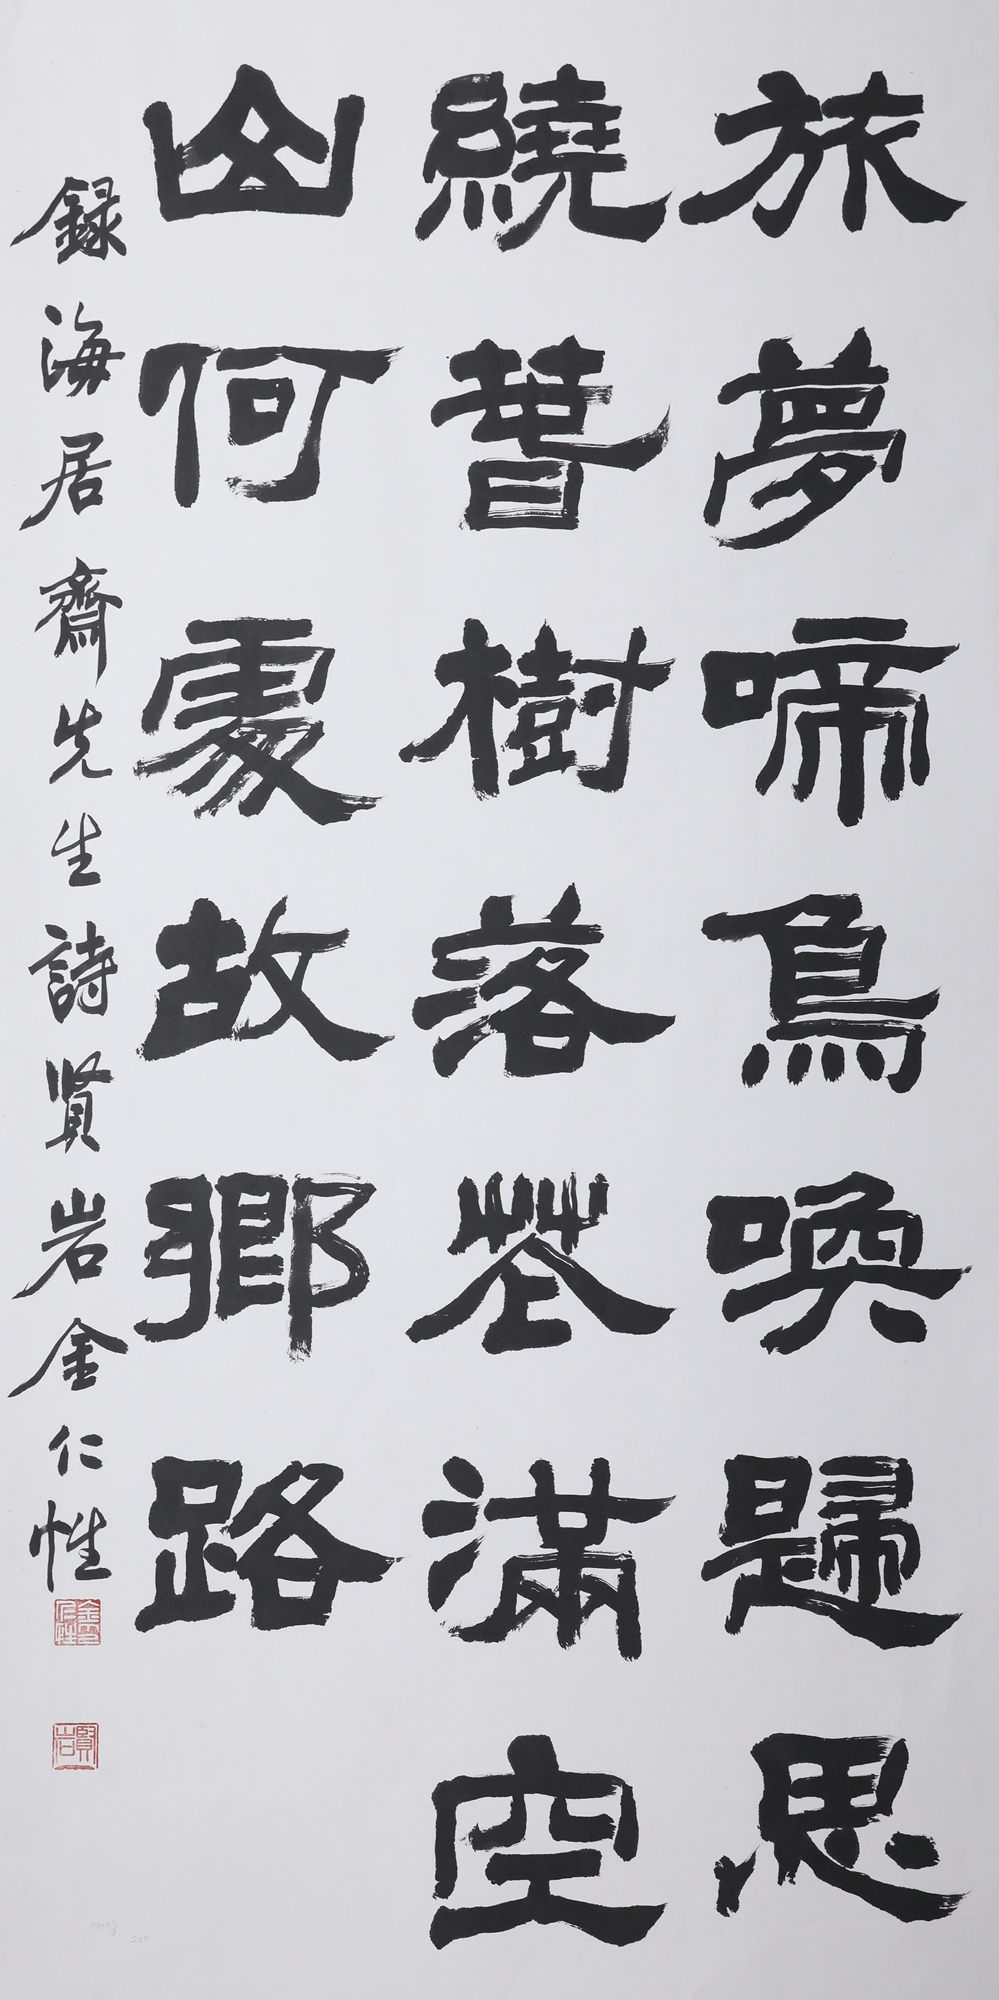 旅夢啼鳥喚歸思
繞萅樹落花滿空
山何處故鄉路
錄海居齋先生詩賢岩金仁惟
賢岩